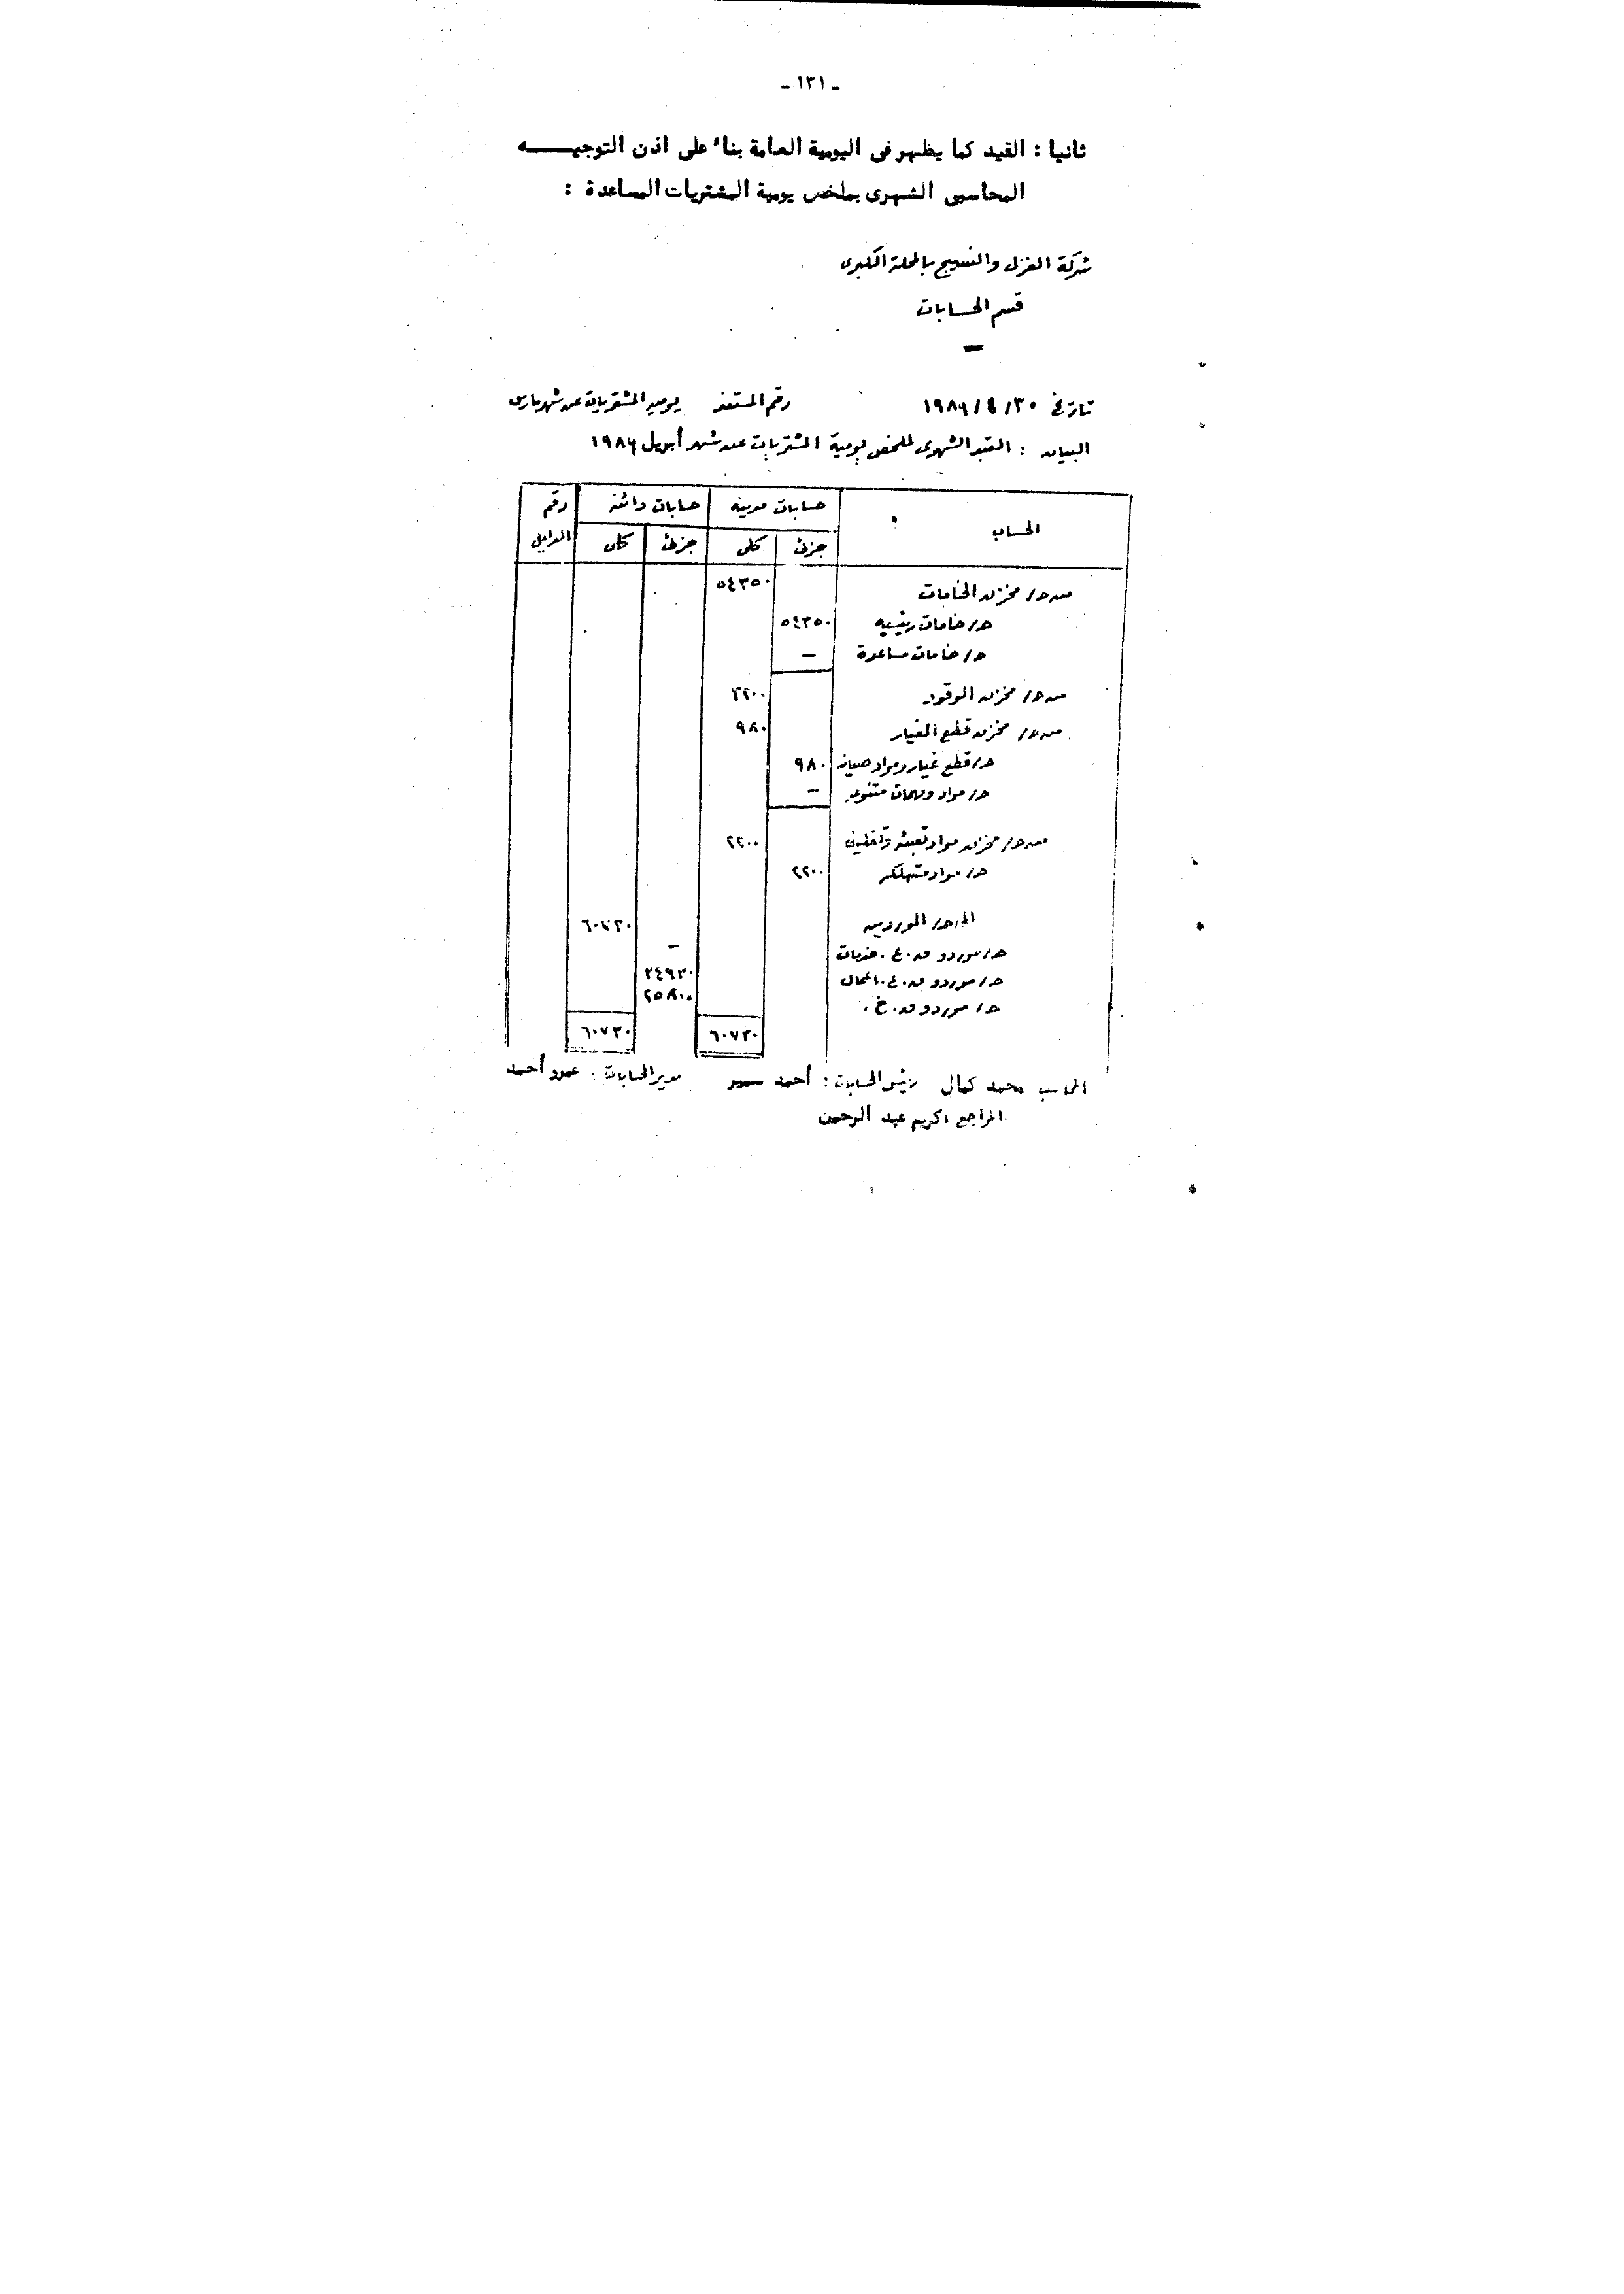 - ١٣١ -
ثانيا : القيد كما يظهر فى اليومية العامة بناء على اذن التوجيـــــه
المحاسبى الشهرى بملخص يومية المشتريات المساعدة :
شركة الغزل والنسيج بالمحلة الكبرى
قسم الحسابات
تاريخ ٣٠ / ٤ / ١٩٨٦ رقم المستند يومية المشتريات عن شهر مارس
البيان : القيد الشهرى لملخص يومية المشتريات عن شهر أبريل ١٩٨٦
الحساب حسابات مدينه حسابات دائنه رقم
جزئى كلى جزئى كلى الدليل
من حـ/ مخزن الخامات ٥٤٣٥٠
حـ/ خامات رئيسيه ٥٤٣٥٠
حـ/ خامات مساعدة –
من حـ/ مخزن الوقود ٣٢٠٠
من حـ/ مخزن قطع الغيار ٩٨٠
حـ/ قطع غيار ومواد صيانه ٩٨٠
حـ/ مواد ومهمات متنوعه –
من حـ/ مخزن مواد تعبئه وتغليف ٢٢٠٠
حـ/ مواد مستهلكه ٢٢٠٠
الى حـ/ الموردين ٦٠٧٣٠
حـ/ موردو ق . ع . خدمات –
حـ/ موردو ق . ع . اعمال ٣٤٩٣٠
حـ/ موردو ق . خ . ٢٥٨٠٠
٦٠٧٣٠ ٦٠٧٣٠
المحاسب محمد كمال رئيس الحسابات : أحمد سمير مدير الحسابات : عمرو أحمد
المراجع كريم عبد الرحمن